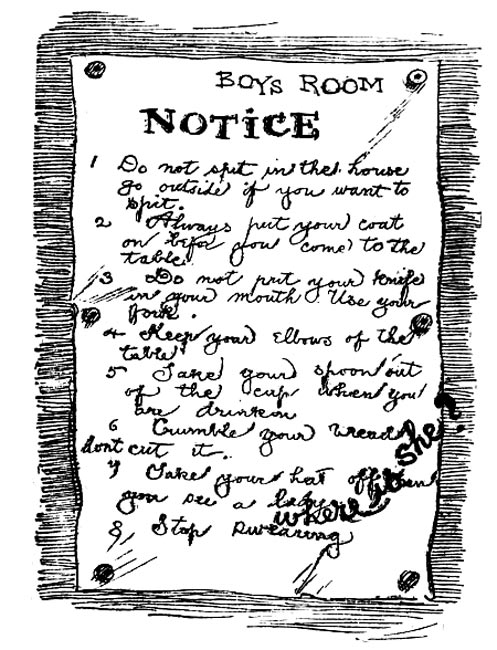 BOYS ROOM
NOTiCE
1 Do not spit in the house
go outside if you want to
spit.
2 Always put your coat
on befor you come to the
table.
3 Do not put your knife
in your mouth Use your
fork.
4 Keep your elbows of the
table
5 Take your spoon out
of the cup when you
are drinken
6 Crumble your bread
dont cut it.
7 Take your hat off when
you see a lady
where is she?
8 Stop swearing